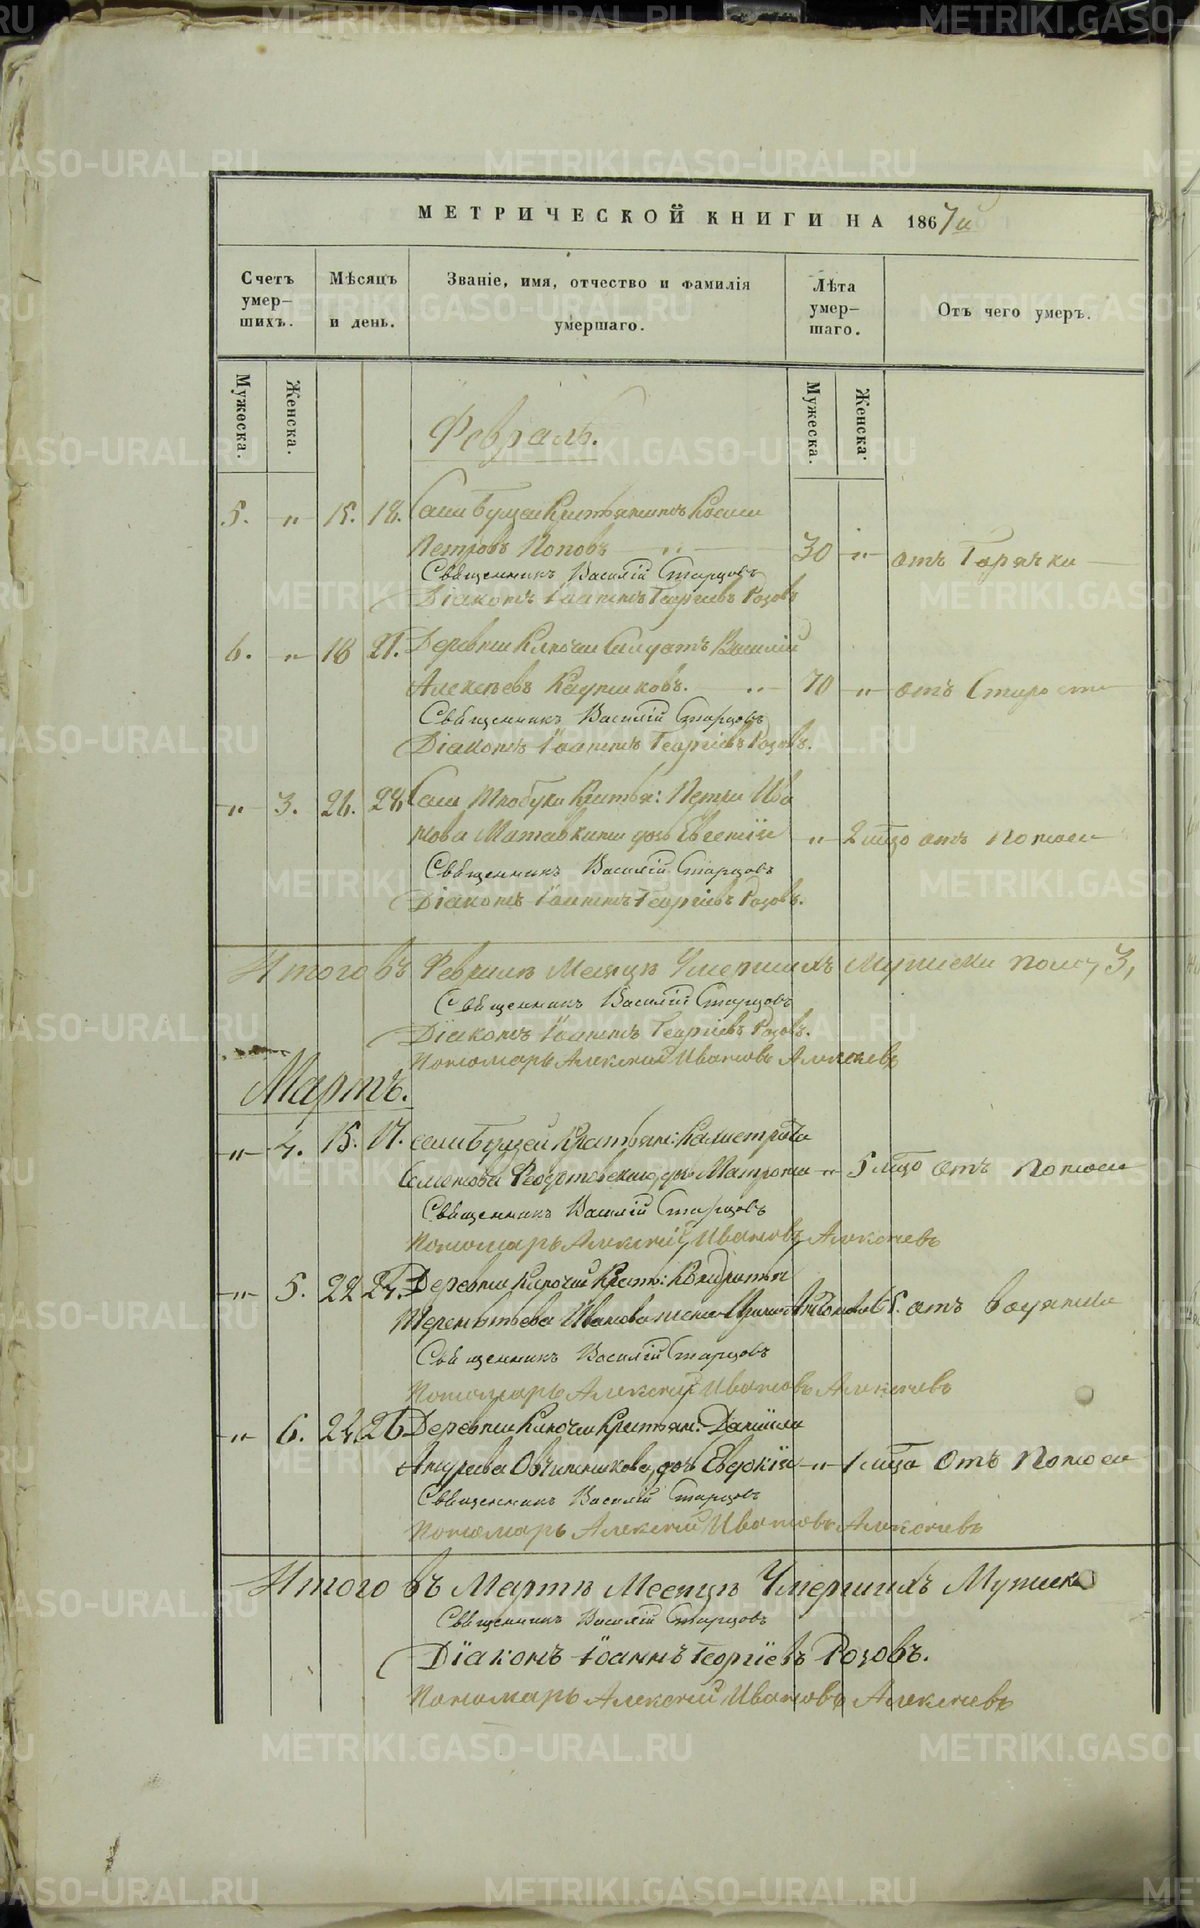 МЕТРИЧЕСКОЙ КНИГИ НА 1867й
Счетъ умер-шихъ.
Мѣсяцъ и день.
Званіе, имя, отчество и фамилія умершаго.
Лѣта умер-шаго.
Отъ чего умеръ.
Мужеска.
Женска.
Мужеска.
Женска.
Февраль.
5. „ 15. 18. Крестьянинъ
Петровъ Поповъ „ 30 „ отъ Горячки
Священникъ Василій Старцовъ
Діаконъ Іоаннъ Георгіевъ Розовъ
6. „ 18 21. Деревни Ключи Салдатъ Василій
Алексѣевъ „ 70 „ отъ Старости
Священникъ Василій Старцовъ
Діаконъ Іоаннъ Георгіевъ Розовъ.
„ 3. 26. 28. Села Крестья: Петра Ива
нова дочь Евгенія „ 2 отъ поноса
Священникъ Василій Старцовъ
Діаконъ Іоаннъ Георгіевъ Розовъ.
Итого въ Февралѣ Месяцѣ Умершихъ мужеска полу 3,
Священникъ Василій Старцовъ
Діаконъ Іоаннъ Георгіевъ Розовъ.
Пономарь Алексѣй Ивановъ Алексѣевъ
Мартъ.
„ 4. 15. 17. Крестьян:
Семенова дочь Матрона „ 5 отъ поноса
Священникъ Василій Старцовъ
Пономарь Алексѣй Ивановъ Алексѣевъ
„ 5. 22 24. Деревни Ключи Крест: Кондратья
Терентьева Иванова жена 65. отъ водянки
Священникъ Василій Старцовъ
Пономарь Алексѣй Ивановъ Алексѣевъ
„ 6. 24 26 Деревни Ключи Крестьян: Даніила
Андреева Овчинникова дочь Евдокія „ 1 отъ поноса
Священникъ Василій Старцовъ
Пономарь Алексѣй Ивановъ Алексѣевъ
Итого въ Мартѣ Месяцѣ Умершихъ Мужеска
Священникъ Василій Старцовъ
Діаконъ Іоаннъ Георгіевъ Розовъ.
Пономарь Алексѣй Ивановъ Алексѣевъ
METRIKI.GASO-URAL.RU